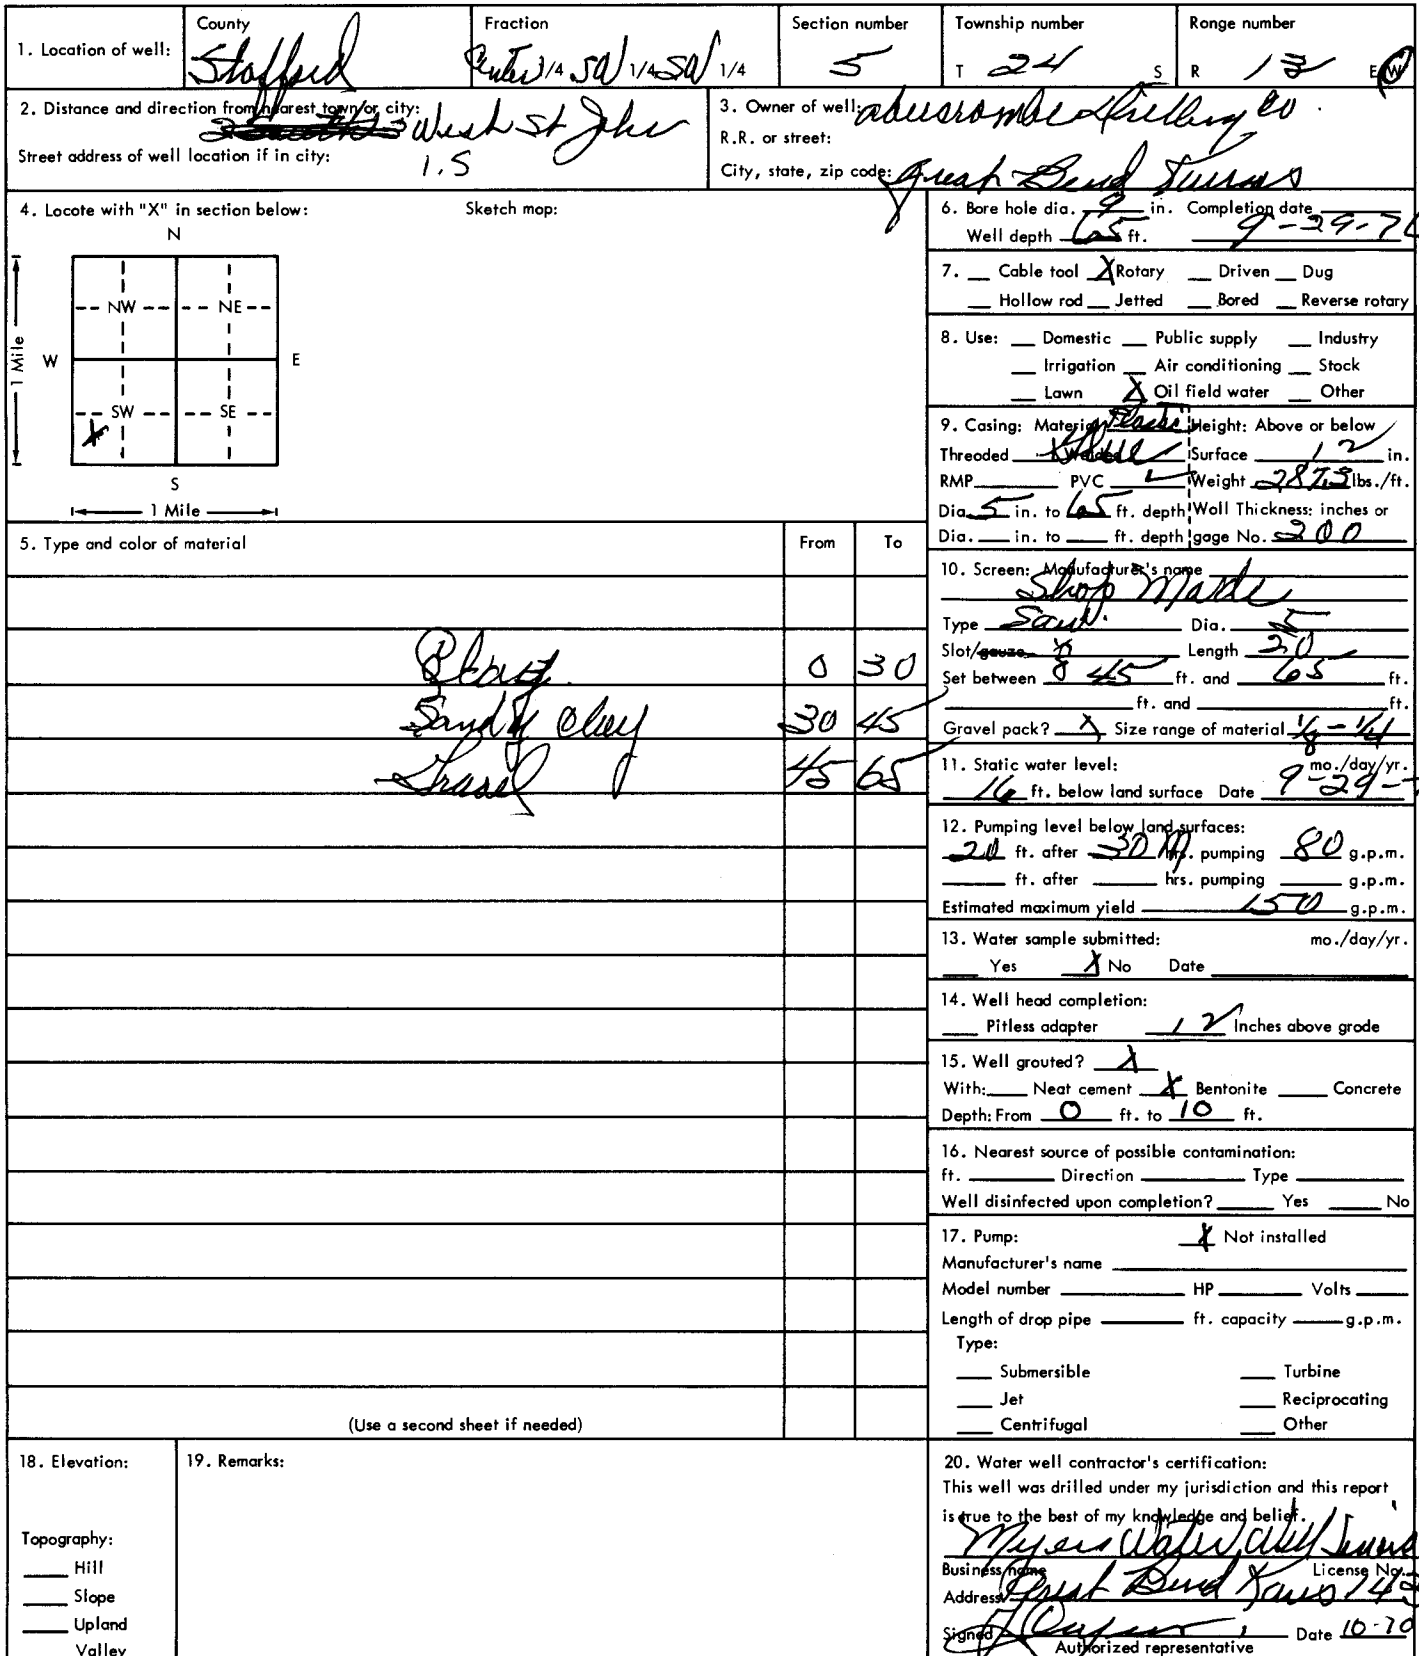 1. Location of well: County Stafford Fraction Center 1/4 SW 1/4 SW 1/4 Section number 5 Township number T 24 S Range number R 13 E W
2. Distance and direction from nearest town or city: 3 West St John
Street address of well location if in city: 1.S
3. Owner of well: Drilling Co.
R.R. or street:
City, state, zip code: Great Bend Kansas
4. Locate with "X" in section below: Sketch map:
N
NW NE
1 Mile
W E
SW SE
X
S
1 Mile
5. Type and color of material From To
0 30
Sandy Clay 30 45
45 65
(Use a second sheet if needed)
6. Bore hole dia. 9 in. Completion date
Well depth 65 ft. 9-29-7
7. Cable tool X Rotary Driven Dug
Hollow rod Jetted Bored Reverse rotary
8. Use: Domestic Public supply Industry
Irrigation Air conditioning Stock
Lawn X Oil field water Other
9. Casing: Material Plastic Height: Above or below
Threaded Welded Glue Surface 12 in.
RMP PVC ✓ Weight lbs./ft.
Dia. 5 in. to 65 ft. depth Wall Thickness: inches or
Dia. in. to ft. depth gage No. 200
10. Screen: Manufacturer's name
Shop Made
Type Dia. 5
Slot/gauze Length 20
Set between 45 ft. and 65 ft.
ft. and ft.
Gravel pack? X Size range of material 1/8 - 1/4
11. Static water level: mo./day/yr.
16 ft. below land surface Date 9-29-
12. Pumping level below land surfaces:
20 ft. after 30 M hrs. pumping 80 g.p.m.
ft. after hrs. pumping g.p.m.
Estimated maximum yield 150 g.p.m.
13. Water sample submitted: mo./day/yr.
Yes X No Date
14. Well head completion:
Pitless adapter 12 Inches above grade
15. Well grouted? X
With: Neat cement X Bentonite Concrete
Depth: From 0 ft. to 10 ft.
16. Nearest source of possible contamination:
ft. Direction Type
Well disinfected upon completion? Yes No
17. Pump: X Not installed
Manufacturer's name
Model number HP Volts
Length of drop pipe ft. capacity g.p.m.
Type:
Submersible Turbine
Jet Reciprocating
Centrifugal Other
18. Elevation:
Topography:
Hill
Slope
Upland
Valley
19. Remarks:
20. Water well contractor's certification:
This well was drilled under my jurisdiction and this report
is true to the best of my knowledge and belief.
Myers Water Well
Business name License No.
Address Great Bend Kans 143
Signed Date 10-70
Authorized representative